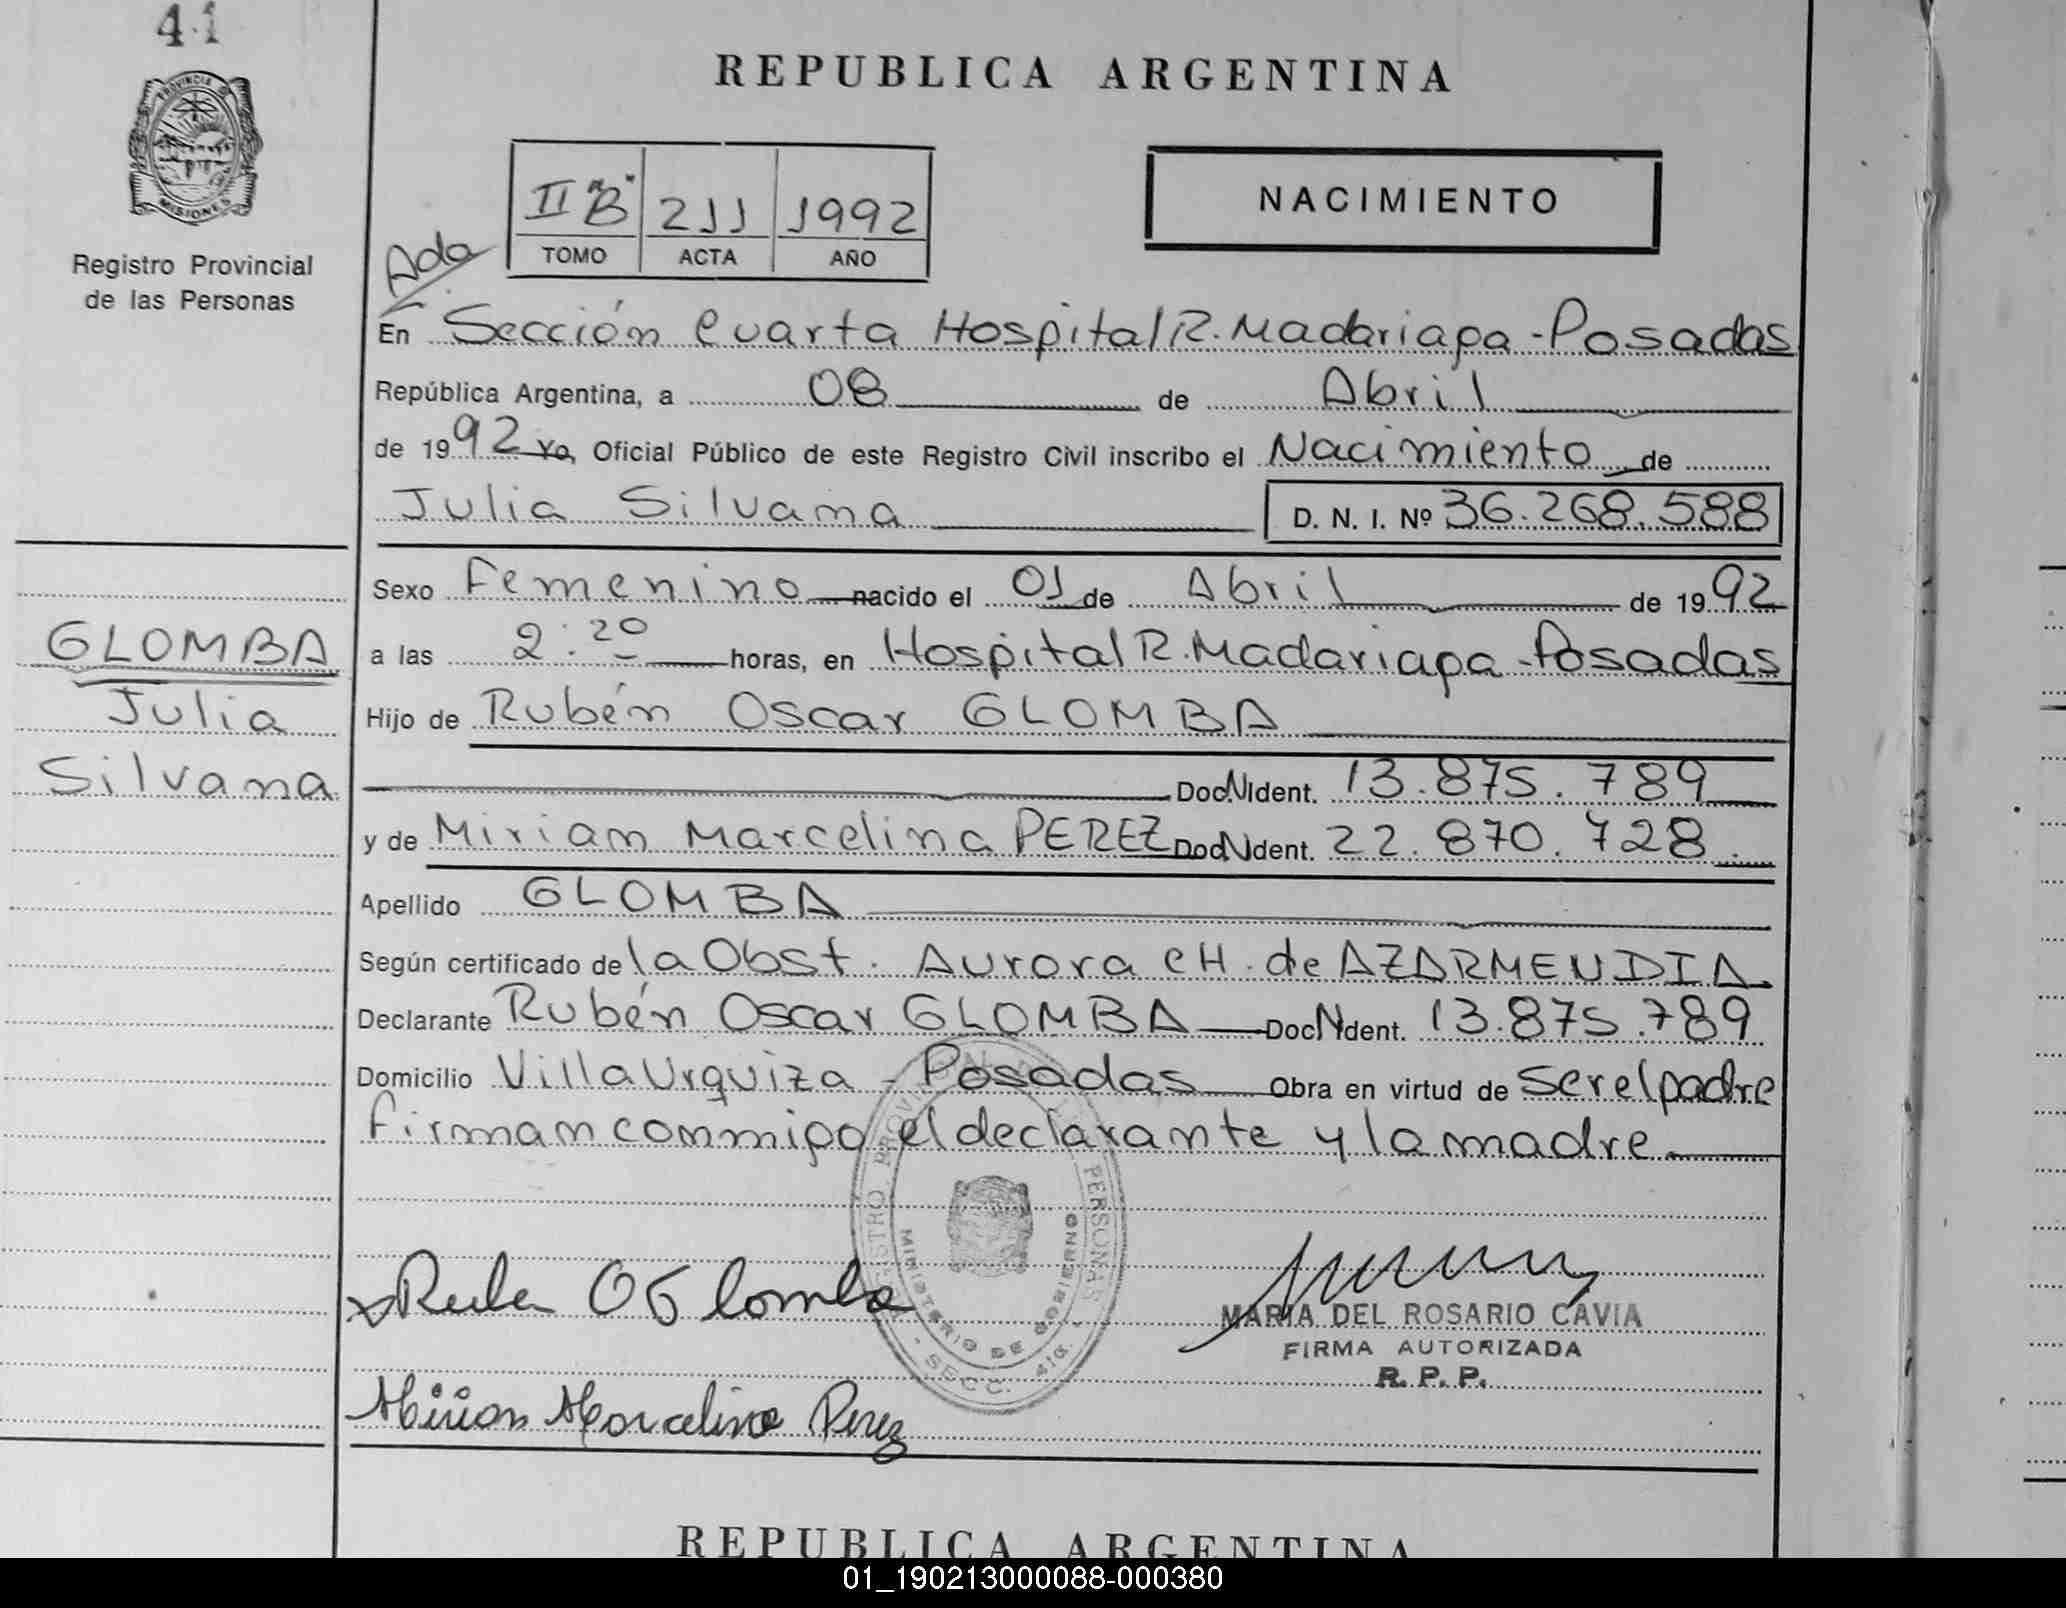 41
REPUBLICA ARGENTINA
PROVINCIA D
MISIONES
Registro Provincial
de las Personas
II "B" 211 1992
TOMO ACTA AÑO
NACIMIENTO
Ada
En Sección Cuarta Hospital R. Madariaga - Posadas
República Argentina, a 08 de Abril
de 1992 Yo, Oficial Público de este Registro Civil inscribo el Nacimiento de
Julia Silvana D. N. I. Nº 36.268.588
Sexo Femenino nacido el 01 de Abril de 1992
a las 2:20 horas, en Hospital R. Madariaga - Posadas
Hijo de Rubén Oscar GLOMBA
Doc. N Ident. 13.875.789
y de Mirian Marcelina PEREZ Doc N Ident. 22.870.728
Apellido GLOMBA
Según certificado de la Obst. Aurora CH. de AZARMENDIA
Declarante Rubén Oscar GLOMBA Doc N Ident. 13.875.789
Domicilio Villa Urquiza - Posadas Obra en virtud de ser el padre
firman conmigo el declarante y la madre.
GLOMBA
Julia
Silvana
PERSONAS
MINISTERIO DE GOBIERNO
SECC. 4ta.
Ruben O Glomba
MARIA DEL ROSARIO CAVIA
FIRMA AUTORIZADA
R. P. P.
Mirian Marcelina Perez
REPUBLICA ARGENTINA
01_190213000088-000380